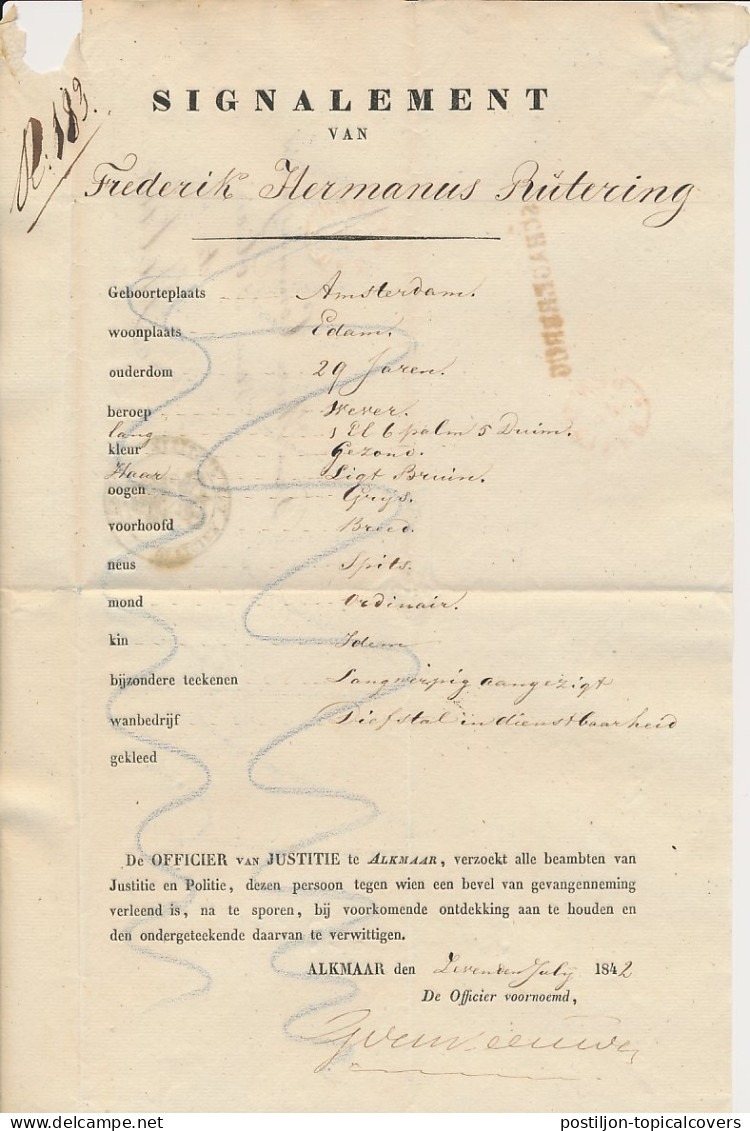 N: 183.
SIGNALEMENT
VAN
Frederik Hermanus Rütering
SCHAGERBRUG
Geboorteplaats Amsterdam.
woonplaats Edam.
ouderdom 29 Jaren.
beroep Wever.
lang 1 El 6 palm 5 Duim.
kleur Gezond.
Haar Ligt Bruin.
oogen Grijs.
voorhoofd Breed.
neus Spits.
mond Ordinair.
kin Idem
bijzondere teekenen Langwerpig aangezigt
wanbedrijf Diefstal in dienstbaarheid
gekleed
De OFFICIER VAN JUSTITIE te ALKMAAR, verzoekt alle beambten van
Justitie en Politie, dezen persoon tegen wien een bevel van gevangenneming
verleend is, na te sporen, bij voorkomende ontdekking aan te houden en
den ondergeteekende daarvan te verwittigen.
ALKMAAR den Zevenden July 1842
De Officier voornoemd,
postiljon-topicalcovers